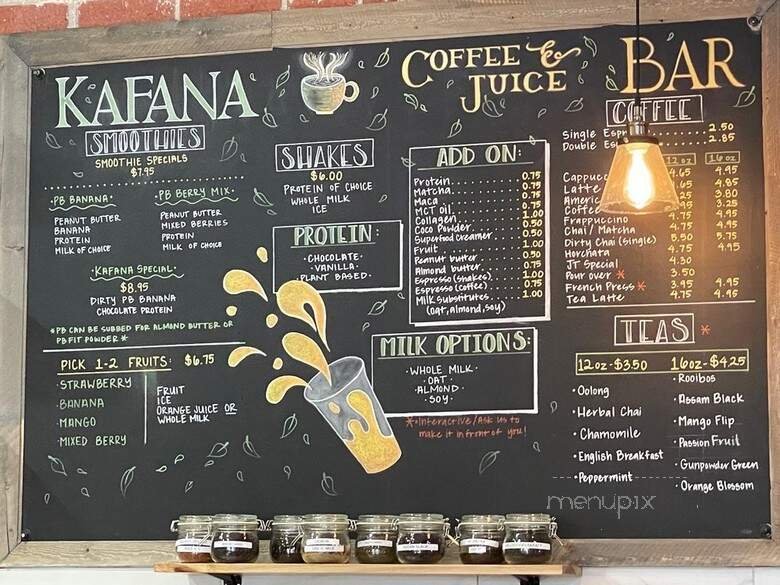 KAFANA COFFEE & JUICE BAR
SMOOTHIES
SMOOTHIE SPECIALS
$7.95
PB BANANA
PEANUT BUTTER
BANANA
PROTEIN
MILK OF CHOICE
PB BERRY MIX
PEANUT BUTTER
MIXED BERRIES
PROTEIN
MILK OF CHOICE
KAFANA SPECIAL
$8.95
DIRTY PB BANANA
CHOCOLATE PROTEIN
*PB CAN BE SUBBED FOR ALMOND BUTTER OR
PBFIT POWDER*
PICK 1-2 FRUITS: $6.75
·STRAWBERRY
·BANANA
·MANGO
·MIXED BERRY
FRUIT
ICE
ORANGE JUICE OR
WHOLE MILK
SHAKES
$6.00
PROTEIN OF CHOICE
WHOLE MILK
ICE
PROTEIN:
·CHOCOLATE·
·VANILLA·
·PLANT BASED·
ADD ON:
Protein 0.75
Matcha 0.75
Maca 0.75
MCT Oil 0.75
Collagen 1.00
Coco Powder 0.50
Superfood creamer 0.75
Fruit 1.00
Peanut butter 0.50
Almond butter 0.75
Espresso (shakes) 1.00
Espresso (coffee) 0.75
Milk substitutes 1.00
(oat, almond, soy)
MILK OPTIONS:
·WHOLE MILK·
·OAT·
·ALMOND·
·SOY·
*=Interactive/Ask us to
make it in front of you!
COFFEE
Single 2.50
Double 2.85
12 oz 16 oz
4.65 4.95
Latte 4.65 4.85
3.80
Coffee 3.25
Frappuccino 4.75 4.95
Chai/Matcha 4.75 4.95
Dirty Chai (single) 5.50 5.75
Horchata 4.75 4.95
JT Special 4.30
Pour over * 3.50
French Press * 3.95 4.95
Tea Latte 4.75 4.95
TEAS *
12oz-$3.50 16oz-$4.25
·Oolong
·Herbal Chai
·Chamomile
·English Breakfast
·Peppermint
·Rooibos
·Assam Black
·Mango Flip
·Passion Fruit
·Gunpowder Green
·Orange Blossom
menupix